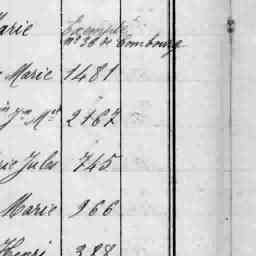 Marie
Exempté
Nº 36 de Combourg
Marie 1481
Jn Mel 2167
rie Jules 745
Marie 966
Henri 388